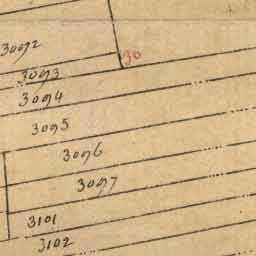 3092
30
3093
3094
3095
3096
3097
3101
3102